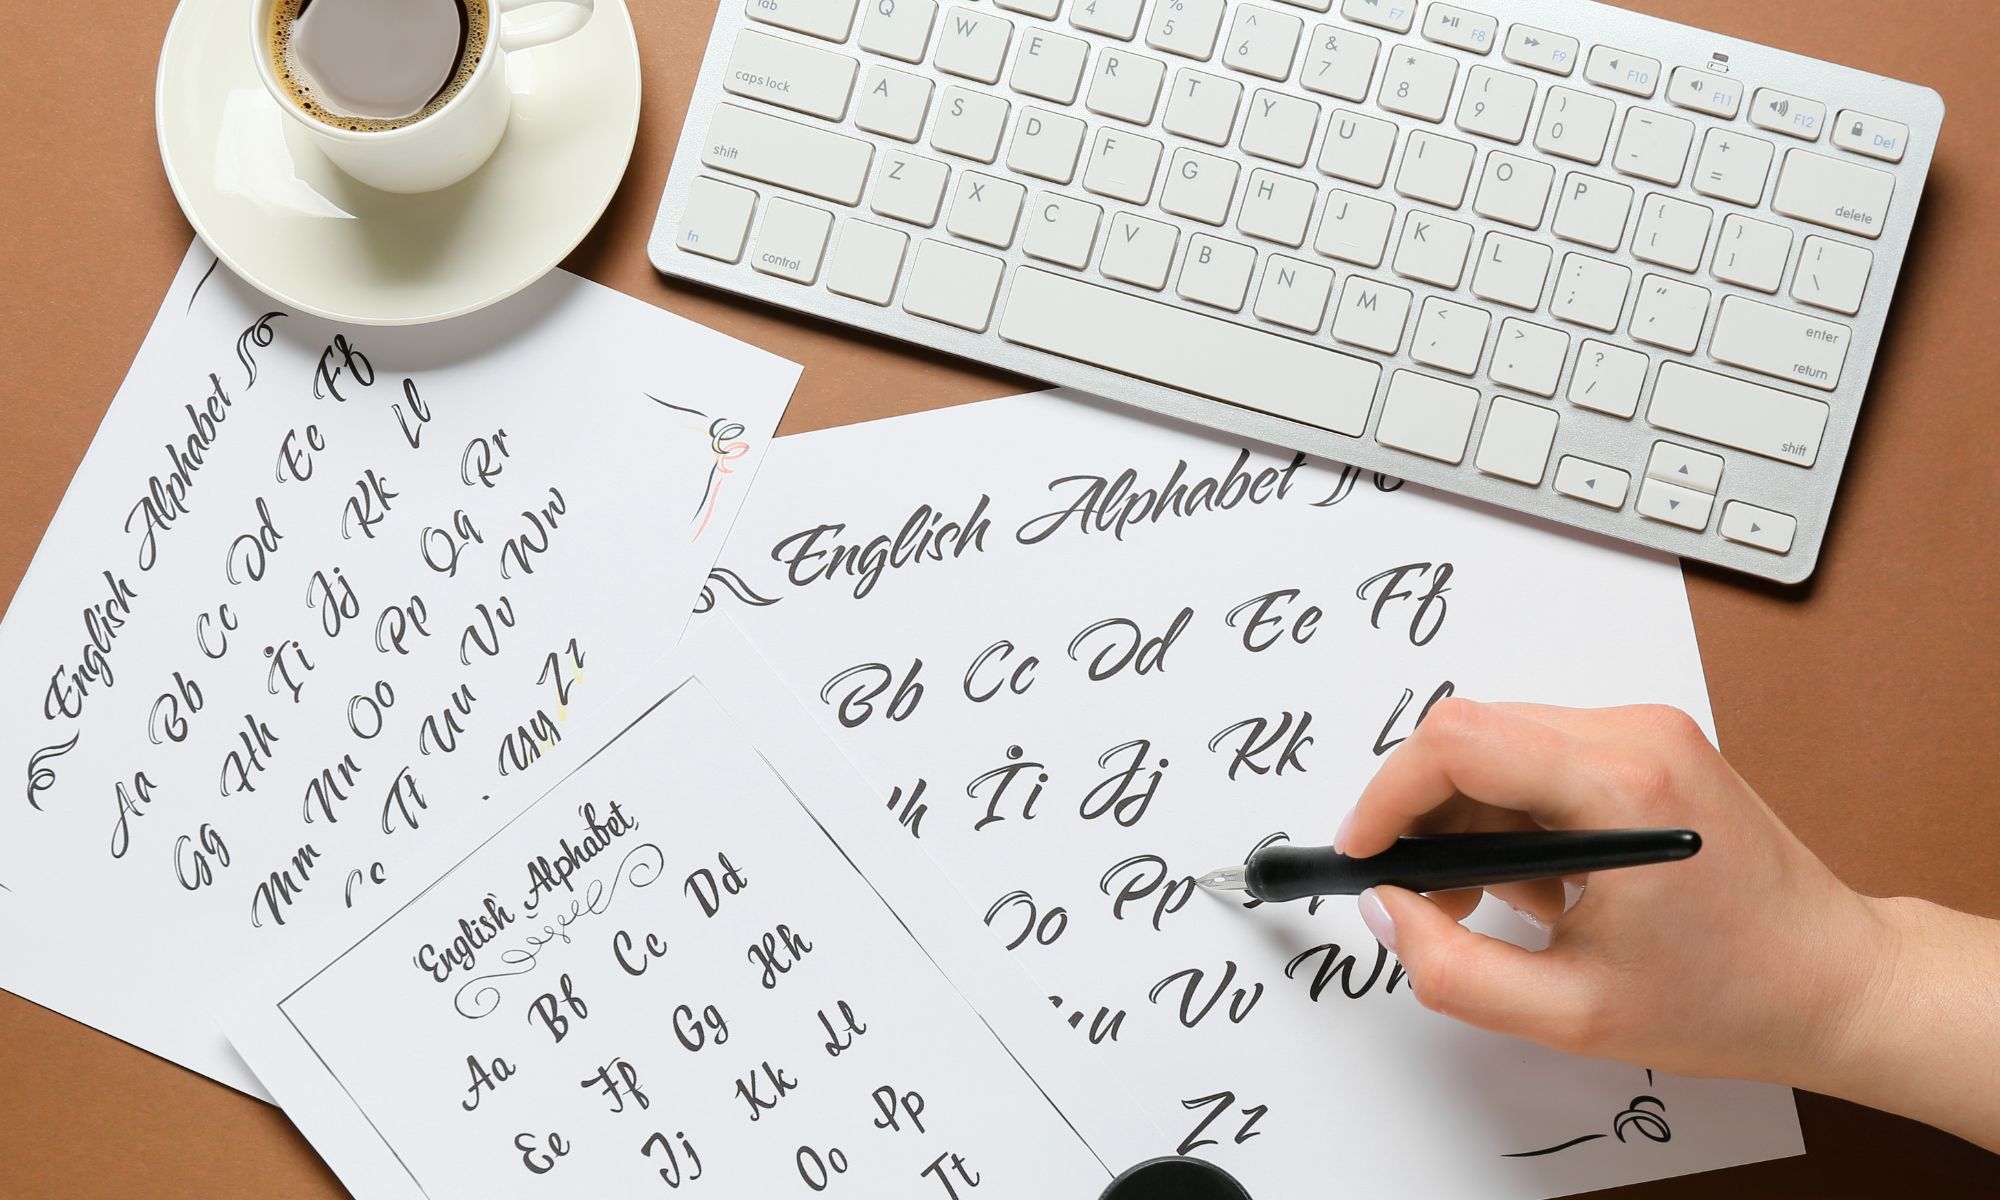 tab Q W E R T Y U I O P { [ } ] | \
4 % 5 ^ 6 & 7 * 8 ( 9 ) 0 _ - + = delete
F7 F8 F9 F10 F11 F12 Del
caps lock A S D F G H J K L : ; " ' enter return
shift Z X C V B N M < , > . ? / shift
fn control
English Alphabet
Aa Bb Cc Dd Ee Ff
Gg Hh Ii Jj Kk Ll
Mm Nn Oo Pp Qq Rr
Tt Uu Vv Ww
Yy Zz
English Alphabet
Aa Bb Cc Dd
Ee Ff Gg Hh
Jj Kk Ll
Oo Pp
Tt
English Alphabet
Bb Cc Dd Ee Ff
h Ii Jj Kk Ll
Oo Pp
u Vv Ww
Zz